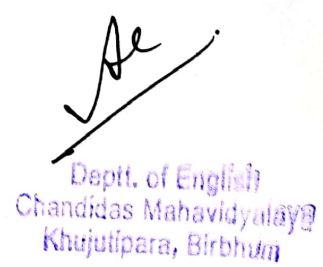 Deptt. of English
Chandidas Mahavidyalaya
Khujutipara, Birbhum